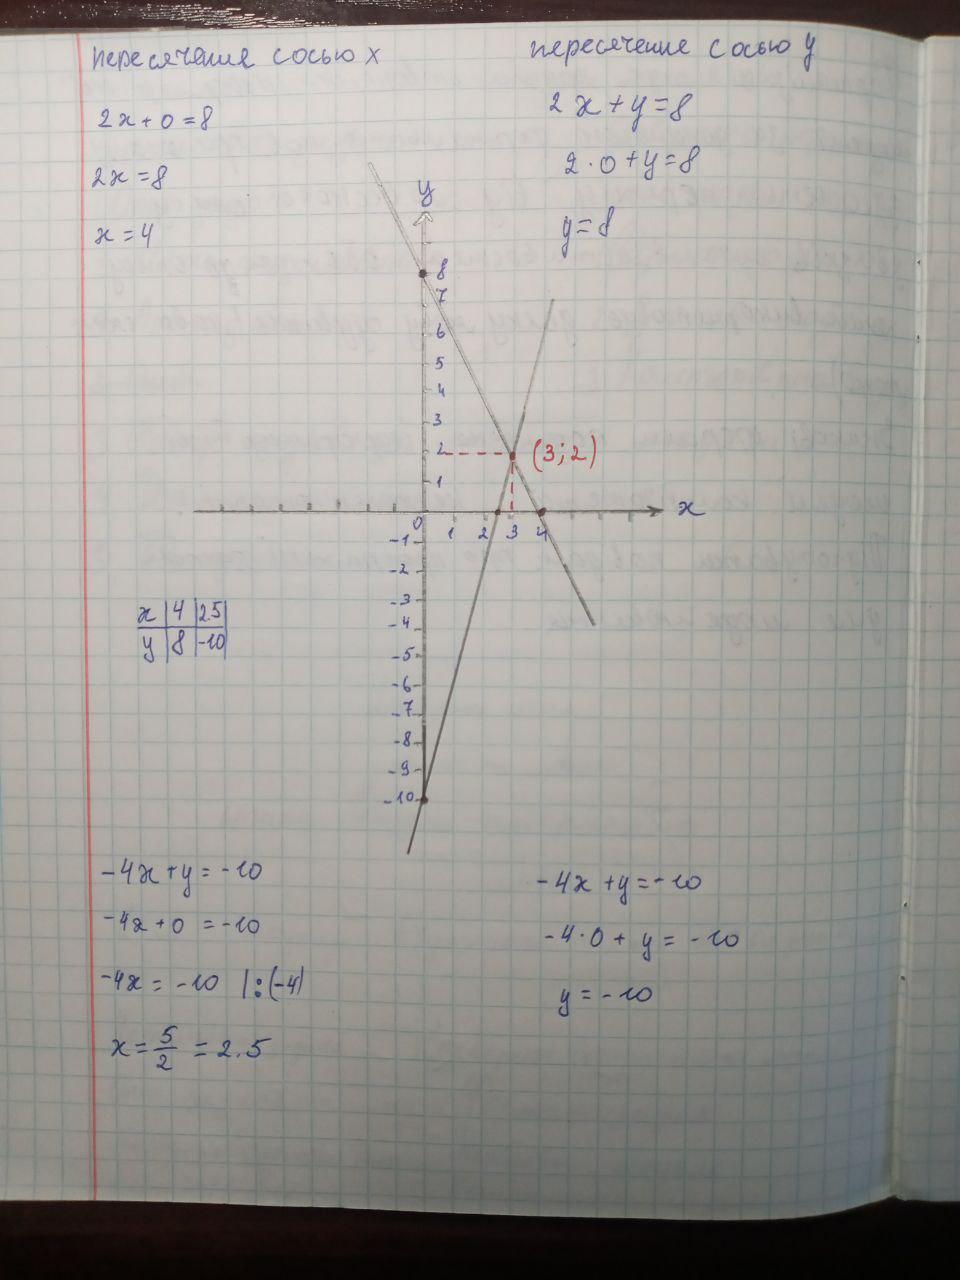 пересечение с осью x
2x + 0 = 8
2x = 8
x = 4
пересечение с осью y
2x + y = 8
2 · 0 + y = 8
y = 8
y
8
7
6
5
4
3
2
1
(3; 2)
0 1 2 3 4 x
-1
-2
-3
-4
-5
-6
-7
-8
-9
-10
x | 4 | 2.5 |
y | 8 | -10 |
-4x + y = -10
-4x + 0 = -10
-4x = -10 |:(-4)
x = 5/2 = 2.5
-4x + y = -10
-4 · 0 + y = -10
y = -10